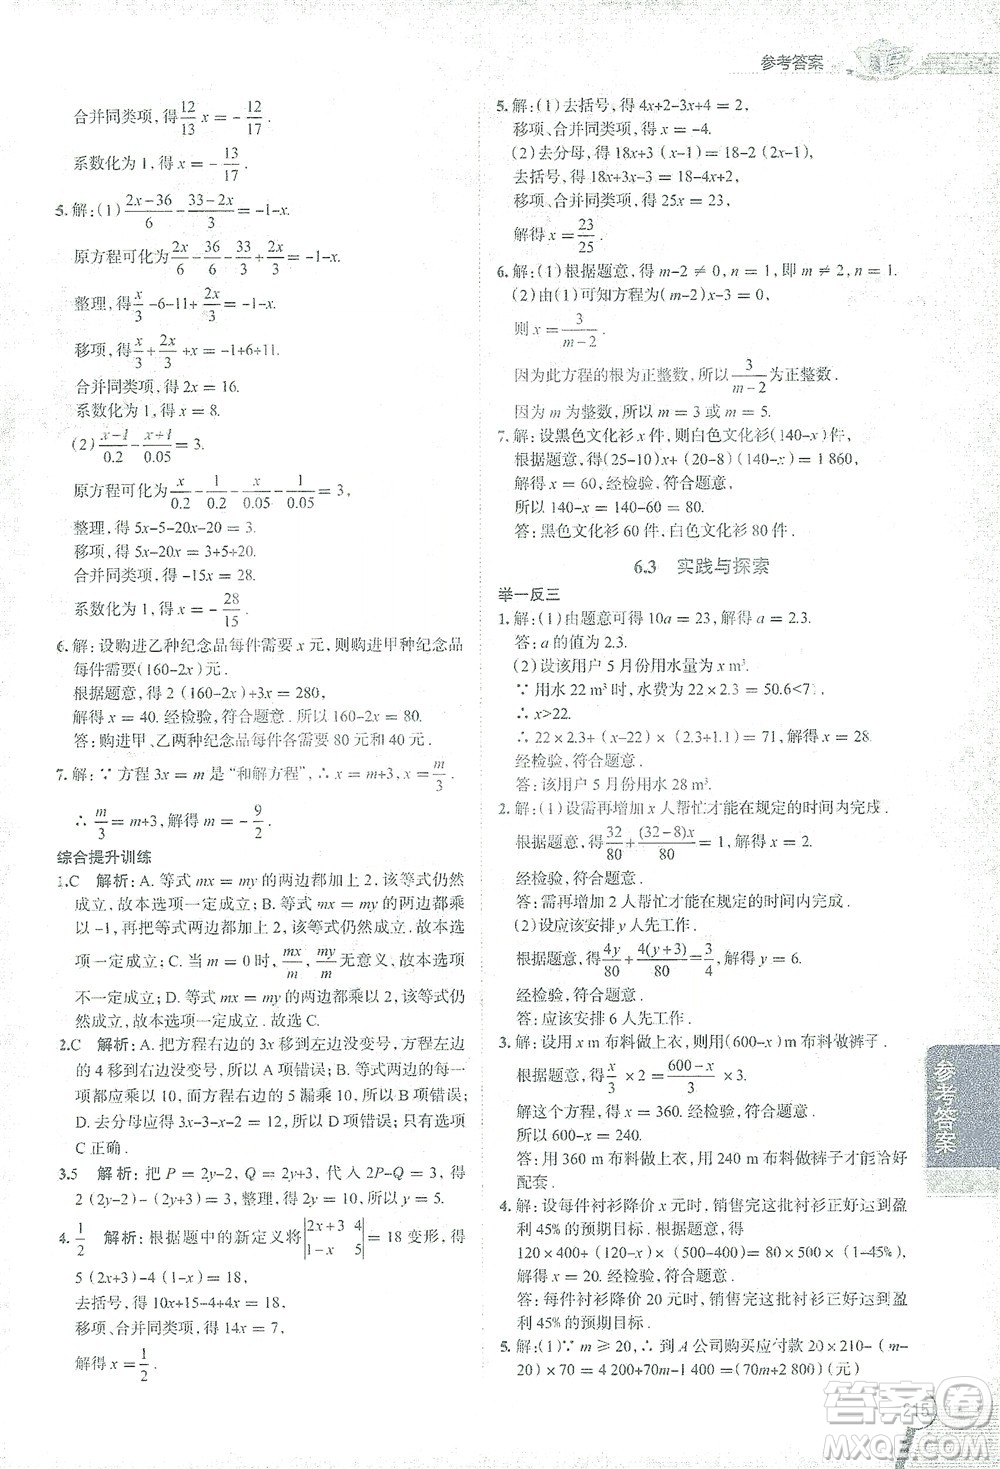 参考答案
合并同类项，得12/13 x = -12/17.
系数化为 1，得 x = -13/17.
5. 解：(1) (2x-36)/6 - (33-2x)/3 = -1-x.
原方程可化为 2x/6 - 36/6 - 33/3 + 2x/3 = -1-x.
整理，得 x/3 -6-11+ 2x/3 = -1-x.
移项，得 x/3 + 2x/3 +x = -1+6+11.
合并同类项，得 2x = 16.
系数化为 1，得 x = 8.
(2) (x-1)/0.2 - (x+1)/0.05 = 3,
原方程可化为 x/0.2 - 1/0.2 - x/0.05 - 1/0.05 = 3,
整理，得 5x-5-20x-20 = 3,
移项，得 5x-20x = 3+5+20,
合并同类项，得 -15x = 28,
系数化为 1，得 x = -28/15.
6. 解：设购进乙种纪念品每件需要 x 元，则购进甲种纪念品
每件需要(160-2x)元.
根据题意，得 2(160-2x)+3x = 280,
解得 x = 40. 经检验，符合题意. 所以 160-2x = 80.
答：购进甲、乙两种纪念品每件各需要 80 元和 40 元.
7. 解：∵ 方程 3x = m 是“和解方程”，∴ x = m+3，x = m/3.
∴ m/3 = m+3，解得 m = -9/2.
综合提升训练
1.C 解析：A. 等式 mx = my 的两边都加上 2，该等式仍然
成立，故本选项一定成立；B. 等式 mx = my 的两边都乘
以 -1，再把等式两边都加上 2，该等式仍然成立. 故本选
项一定成立；C. 当 m = 0时，mx/m、my/m 无意义，故本选项
不一定成立；D. 等式 mx = my 的两边都乘以 2，该等式仍
然成立，故本选项一定成立. 故选 C.
2.C 解析：A. 把方程右边的 3x 移到左边没变号，方程左边
的 4 移到右边没变号. 所以 A 项错误；B. 方程两边的每一
项都应乘以 10，而方程左边的 5 漏乘 10，所以 B 项错误；
D. 去分母应得 3x-3-x-2 = 12，所以 D 项错误，故选
C 正确.
3.5 解析：把 P = 2y-2，Q = 2y+2，代入 2P-Q = 4，得
2(2y-2)-(2y+2) = 3，整理，得 2y = 10，解得 y = 5.
4. 1/2 解析：根据题中的新定义将 |2x+3 4; 1-x 5| = 18 变形，得
5(2x+3)-4(1-x) = 18,
去括号，得 10x+15-4+4x = 18,
移项、合并同类项，得 14x = 7,
解得 x = 1/2
5. 解：(1)去括号，得 4x+2-3x+4 = 2,
移项、合并同类项，得 x = -4.
(2)去分母，得 18x+3(x-1) = 18-2(2x-1),
去括号，得 18x+3x-3 = 18-4x+2,
移项、合并同类项，得 25x = 23,
解得 x = 23/25.
6. 解：(1)根据题意，得 m-2 ≠ 0，n = 1，即 m ≠ 2，n = 1.
(2)由(1)可知方程为(m-2)x-3 = 0,
则 x = 3/(m-2).
因为此方程的根为正整数，所以 3/(m-2) 为正整数.
又因为 m 为整数，所以 m = 3 或 m = 5.
7. 解：设黑色文化衫 x 件，则白色文化衫(140-x)件，
根据题意，得(25-10)x+(20-8)(140-x) = 1 860,
解得 x = 60，经检验，符合题意，
所以 140-x = 140-60 = 80.
答：黑色文化衫 60 件，白色文化衫 80 件.
6.3 实践与探索
举一反三
1. 解：(1)由题意可得 10a = 23，解得 a = 2.3.
答：a 的值为 2.3.
(2)设该用户 5 月份用水量为 x m³.
∵ 用水 22 m³ 时，水费为 22×2.3 = 50.6<71,
∴ x>22.
∴ 22×2.3+(x-22)×(2.3+1.1) = 71，解得 x = 28.
经检验，符合题意.
答：该用户 5 月份用水 28 m³.
2. 解：(1)设需再增加 x 人帮忙才能在规定的时间内完成.
根据题意，得 32/80 + (32-8)x/80 = 1，解得 x = 2.
经检验，符合题意.
答：需再增加 2 人帮忙才能在规定的时间内完成.
(2)设应该安排 y 人先工作.
根据题意，得 4y/80 + 4(y+3)/80 = 3/4，解得 y = 6.
经检验，符合题意.
答：应该安排 6 人先工作.
3. 解：设用 x m 布料做上衣，则用(600-x)m 布料做裤子.
根据题意，得 x/3 ×2 = (600-x)/3 ×3,
解这个方程，得 x = 360. 经检验，符合题意.
所以 600-x = 240.
答：用 360 m 布料做上衣，用 240 m 布料做裤子才能恰好
配套.
4. 解：设每件衬衫降价 x 元，销售完这批衬衫正好达到盈
利 45%的预期目标. 根据题意，得
120×400+(120-x)×(500-400) = 80×500×(1+45%).
解得 x = 20. 经检验，符合题意.
答：每件衬衫降价 20 元时，销售完这批衬衫正好达到盈
利 45%的预期目标.
5. 解：(1)∵ m ≥ 20，∴ 到 A 公司购买应付款 20×210+(m-
20)×70 = 4 200+70m-1 400 = (70m+2 800)(元)
参考答案
215
答案圈
MXQE.COM